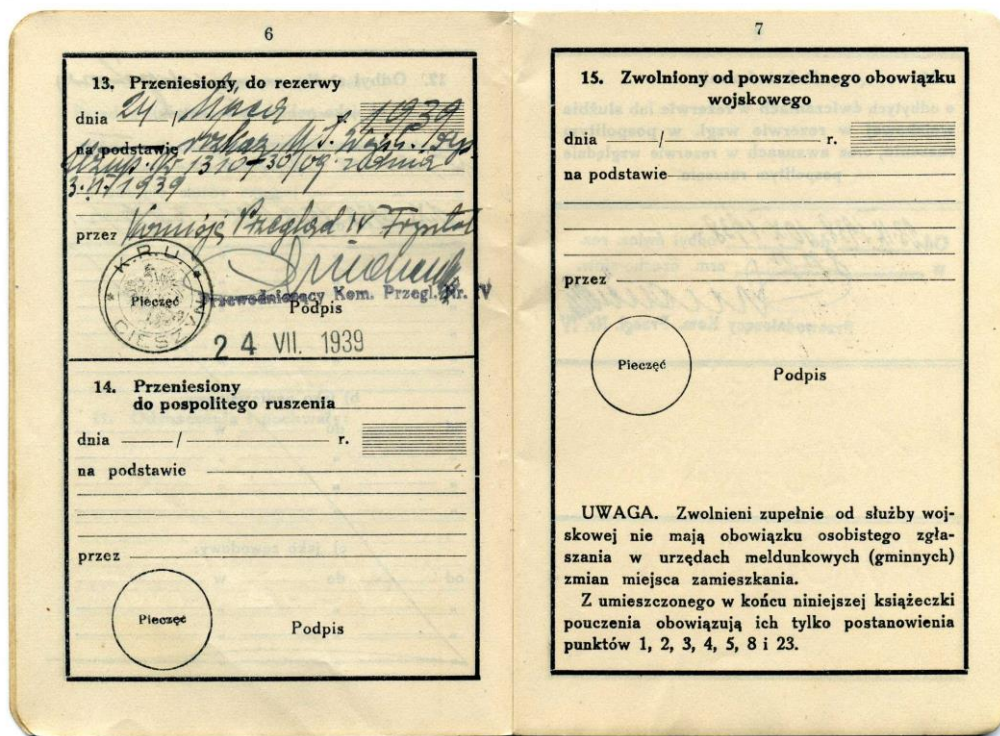 6
13. Przeniesiony do rezerwy
dnia 24 lipca 1939
na podstawie rozkaz M. S. Wojsk. Dep.
Uzup. Nr 1310-30/
3. 1939
przez Komisję Przegląd IV Frysztat
K.R.U.
Pieczęć
CIESZYN
Przewodniczący Kom. Przegl. Nr. IV
Podpis
24 VII. 1939
14. Przeniesiony
do pospolitego ruszenia
dnia / r.
na podstawie
przez
Pieczęć
Podpis
7
15. Zwolniony od powszechnego obowiązku
wojskowego
dnia / r.
na podstawie
przez
Pieczęć
Podpis
UWAGA. Zwolnieni zupełnie od służby woj-
skowej nie mają obowiązku osobistego zgła-
szania w urzędach meldunkowych (gminnych)
zmian miejsca zamieszkania.
Z umieszczonego w końcu niniejszej książeczki
pouczenia obowiązują ich tylko postanowienia
punktów 1, 2, 3, 4, 5, 8 i 23.